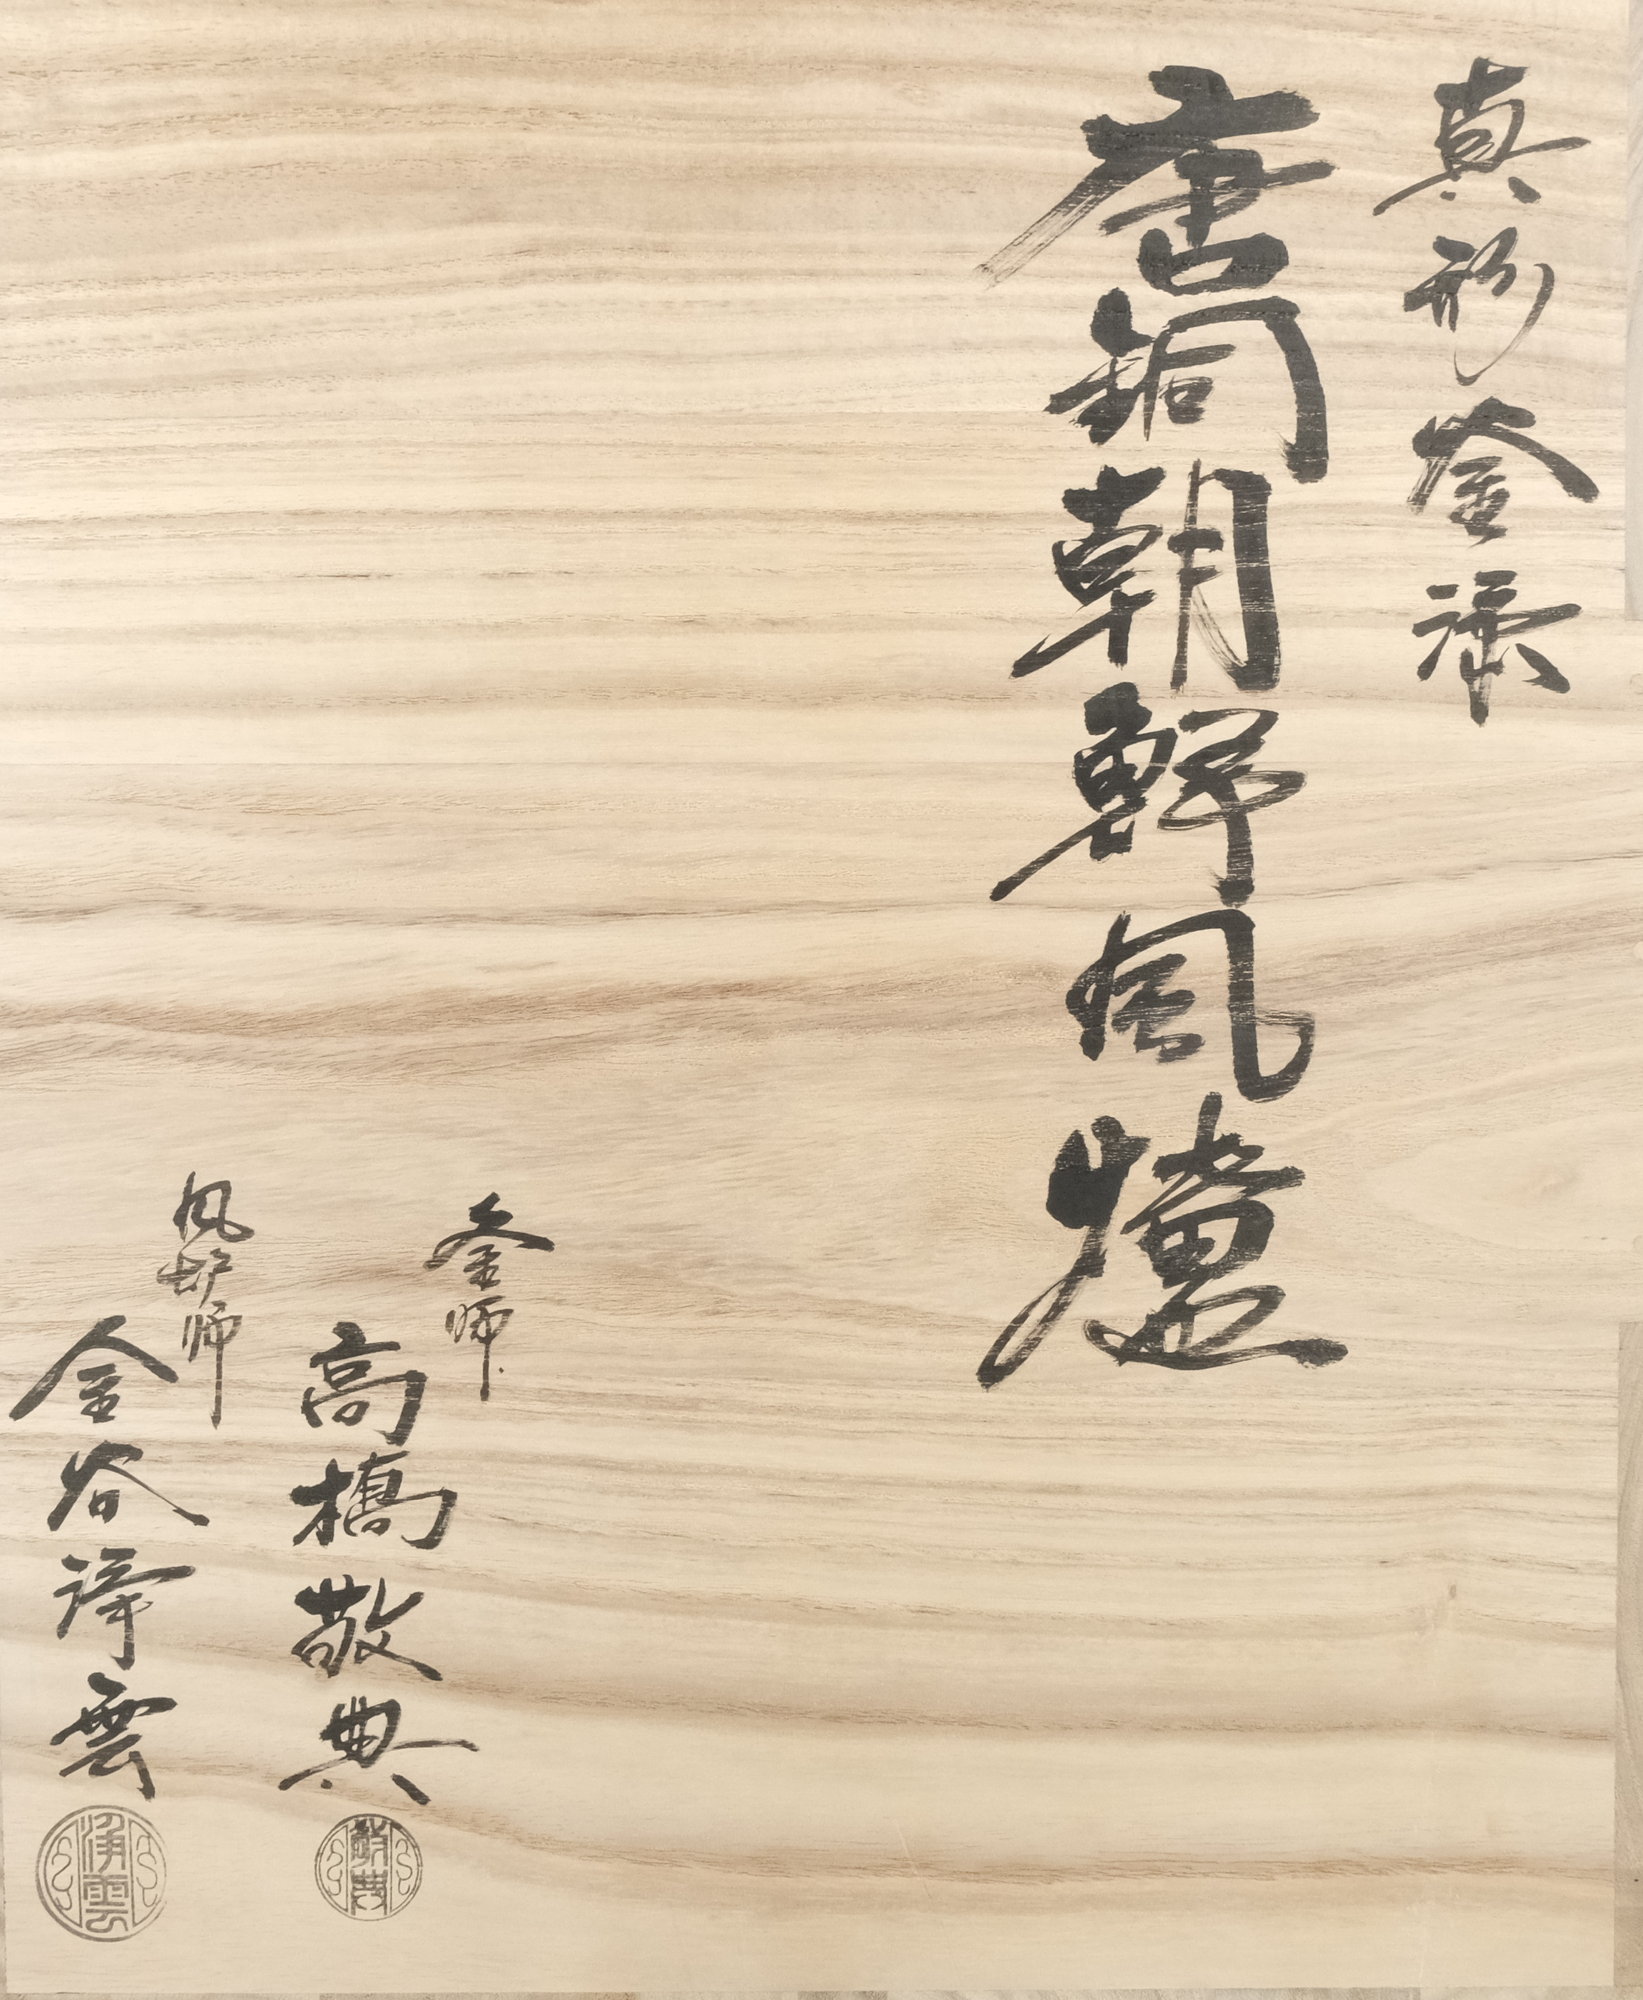 真形釜添
唐銅朝鮮風爐
釜師
高橋敬典
敬典
風炉師
金谷浄雲
浄雲